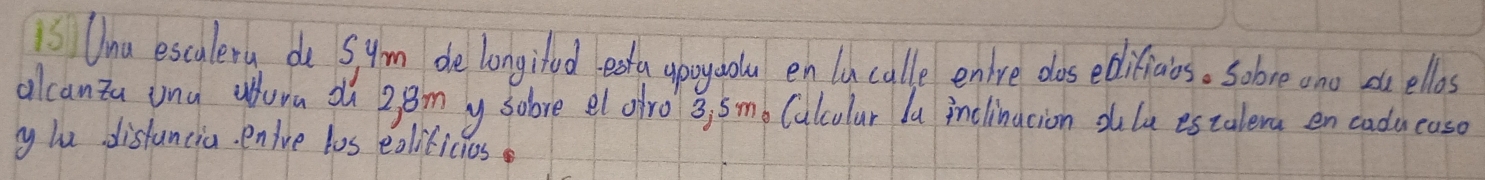 15) Una escalera de 5,4m de longitud esta apoyada en la calle entre dos edificios. Sobre uno de ellos
alcanza una altura de 2,8m y sobre el otro 3,5m. Calcular la inclinacion de la escalera en cada caso
y la distancia entre los edificios.